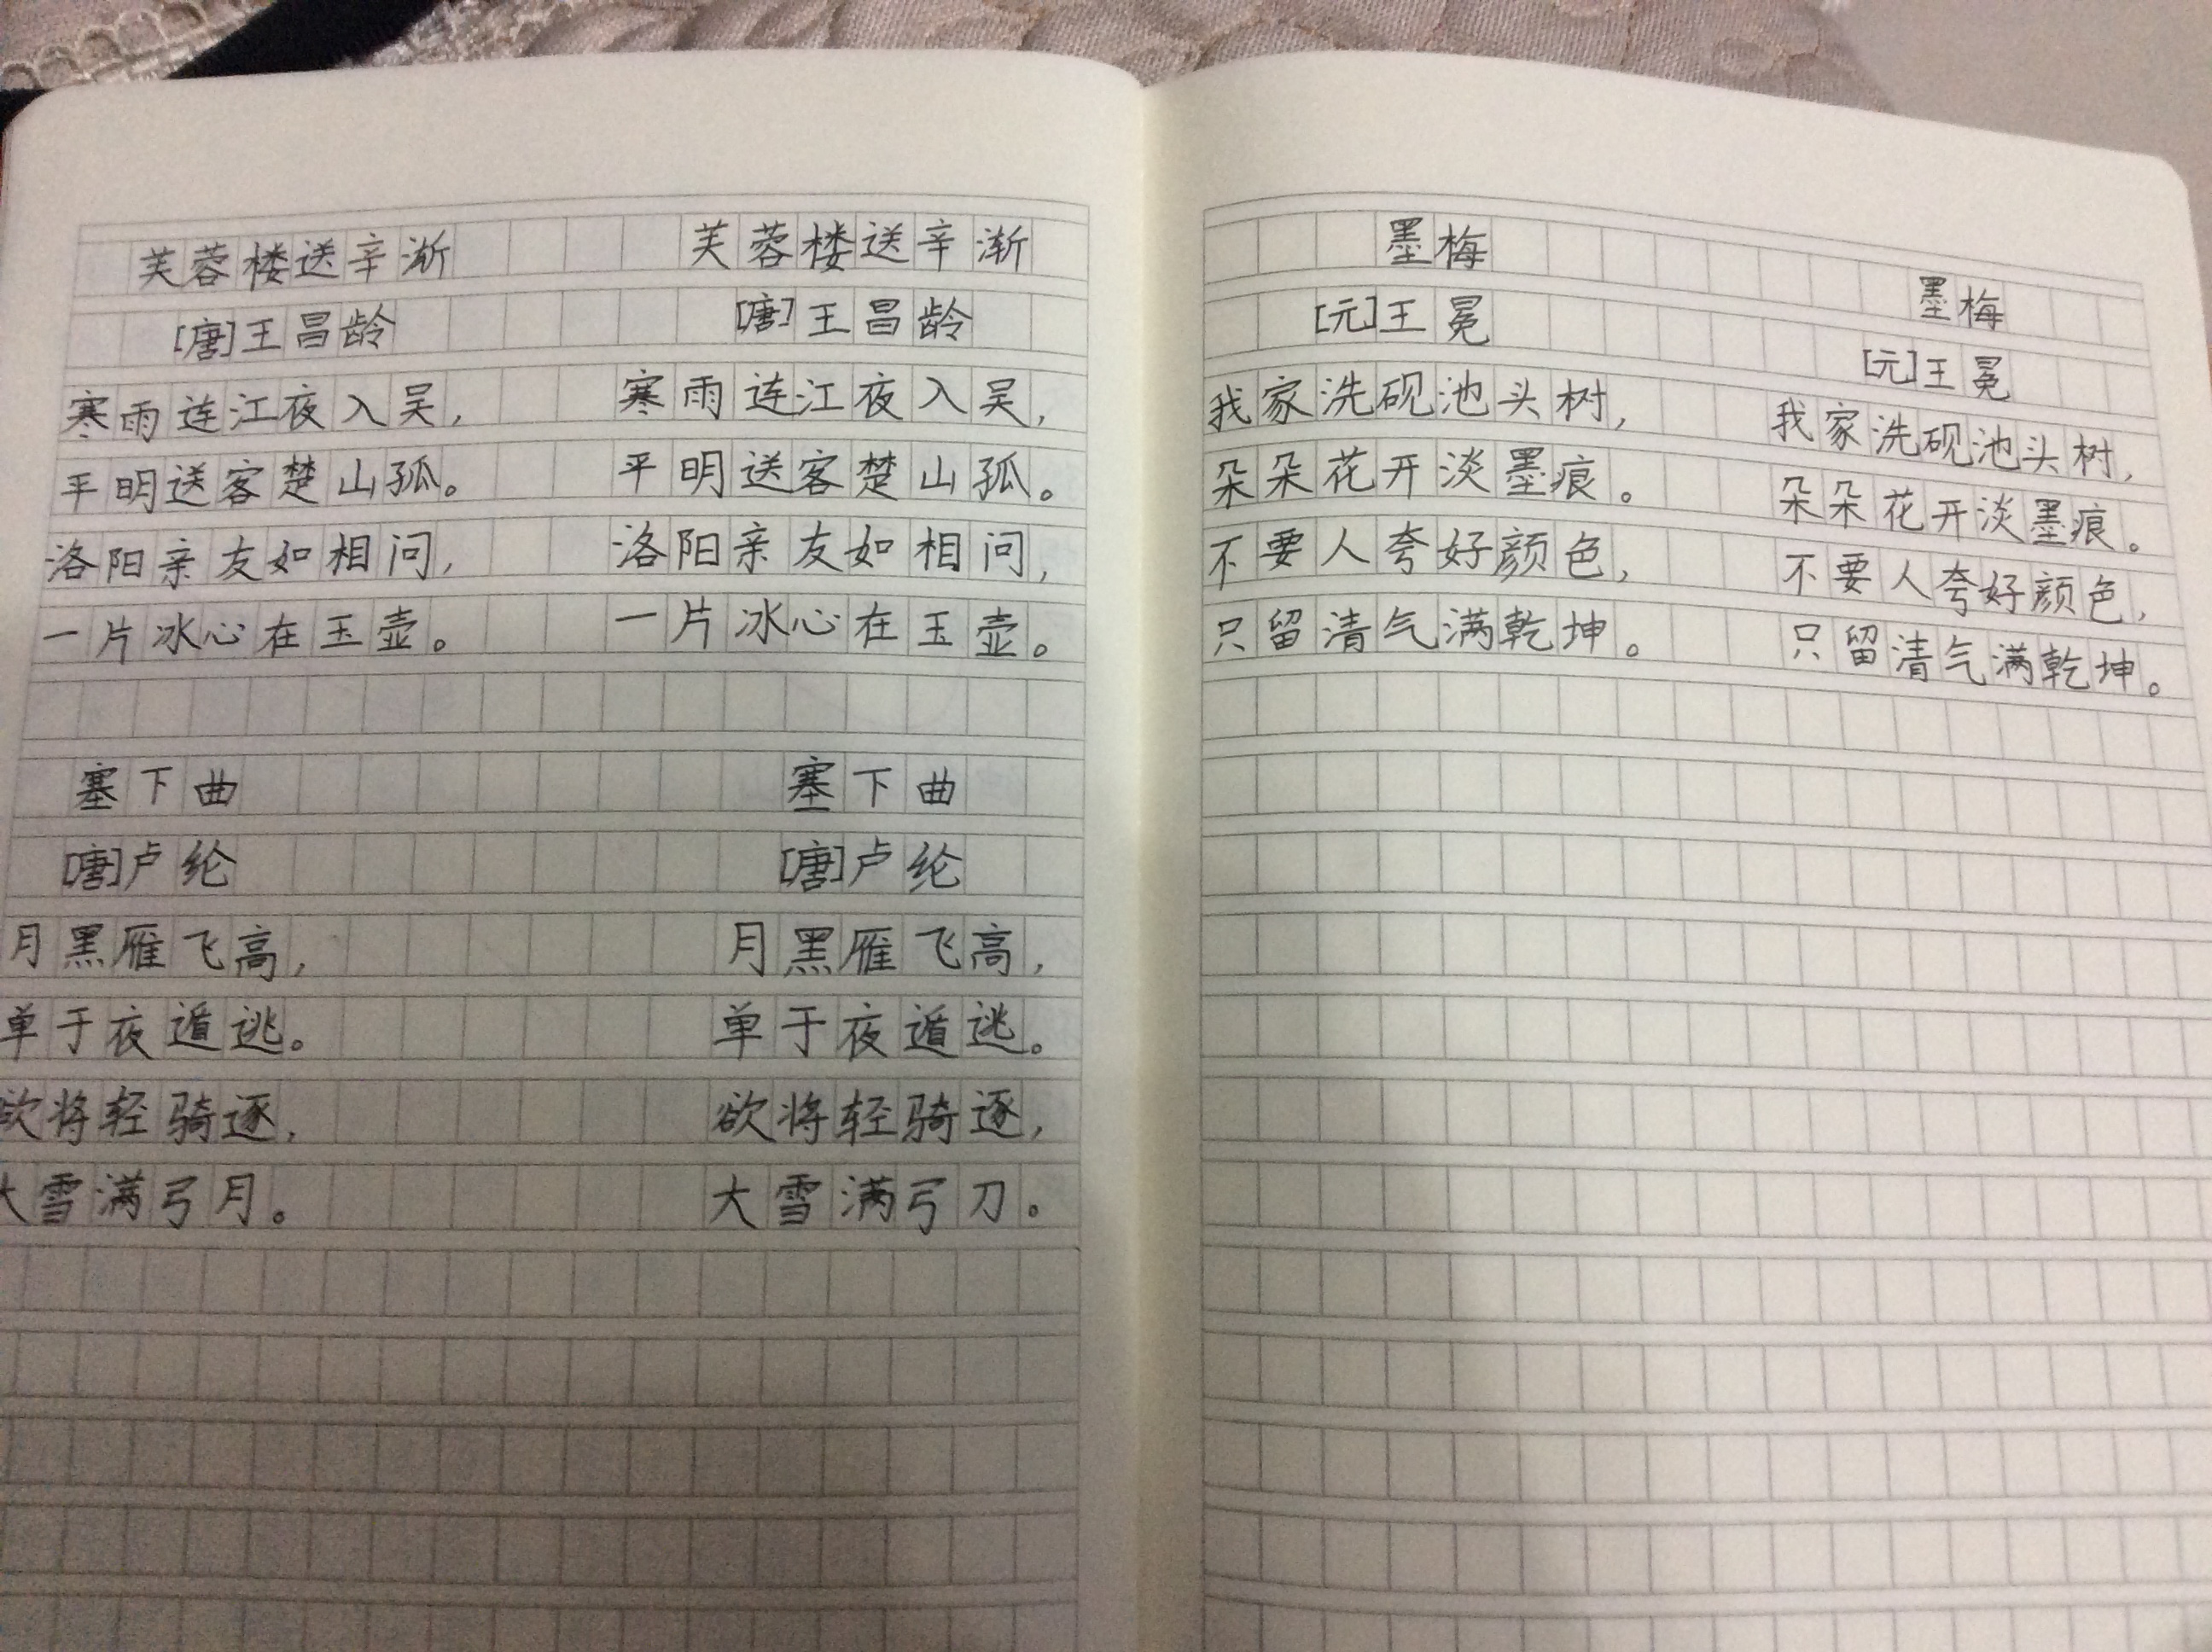 芙蓉楼送辛渐
[唐]王昌龄
寒雨连江夜入吴,
平明送客楚山孤。
洛阳亲友如相问,
一片冰心在玉壶。
芙蓉楼送辛渐
[唐]王昌龄
寒雨连江夜入吴,
平明送客楚山孤。
洛阳亲友如相问,
一片冰心在玉壶。
塞下曲
[唐]卢纶
月黑雁飞高,
单于夜遁逃。
欲将轻骑逐,
大雪满弓月。
塞下曲
[唐]卢纶
月黑雁飞高,
单于夜遁逃。
欲将轻骑逐,
大雪满弓刀。
墨梅
[元]王冕
我家洗砚池头树,
朵朵花开淡墨痕。
不要人夸好颜色,
只留清气满乾坤。
墨梅
[元]王冕
我家洗砚池头树,
朵朵花开淡墨痕。
不要人夸好颜色,
只留清气满乾坤。